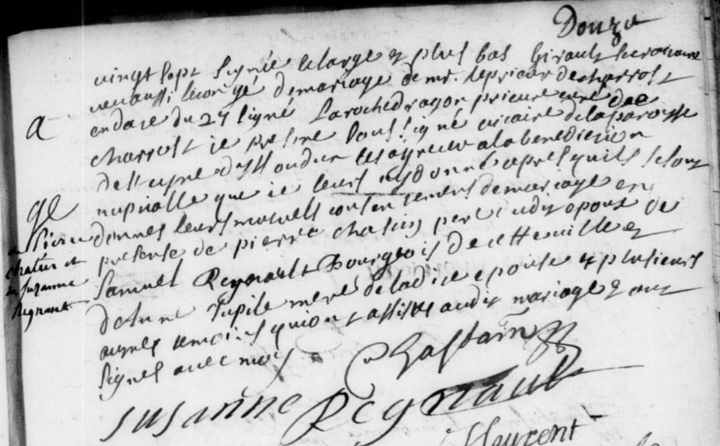 Douzu
vingt sept signée lelarge et plus bas Girault secretaire
veu aussi le congé de mariage de mr. le prieur de charrost
en datte du 27 signé Larochedragon prieur curé de
charrost je pretre soussigné vicaire de la paroisse
de st cyre d'Issoudun les ay receu a la benediction
nuptialle que je leurs ay donné apres qu'ils se sont
donnes leurs mutuels consentemens de mariage en
presense de pierre chastin pere dudit epoux de
Samuel Regnault Bourgeois de cette ville et
de mere de ladite epouse et plusieurs
autres temoins qui ont assistes audit mariage et ont
signes avec moy
a
ge
Pierre
chatin et
Suzanne
Regnault
Chastain
susanne Regnault
Laurent